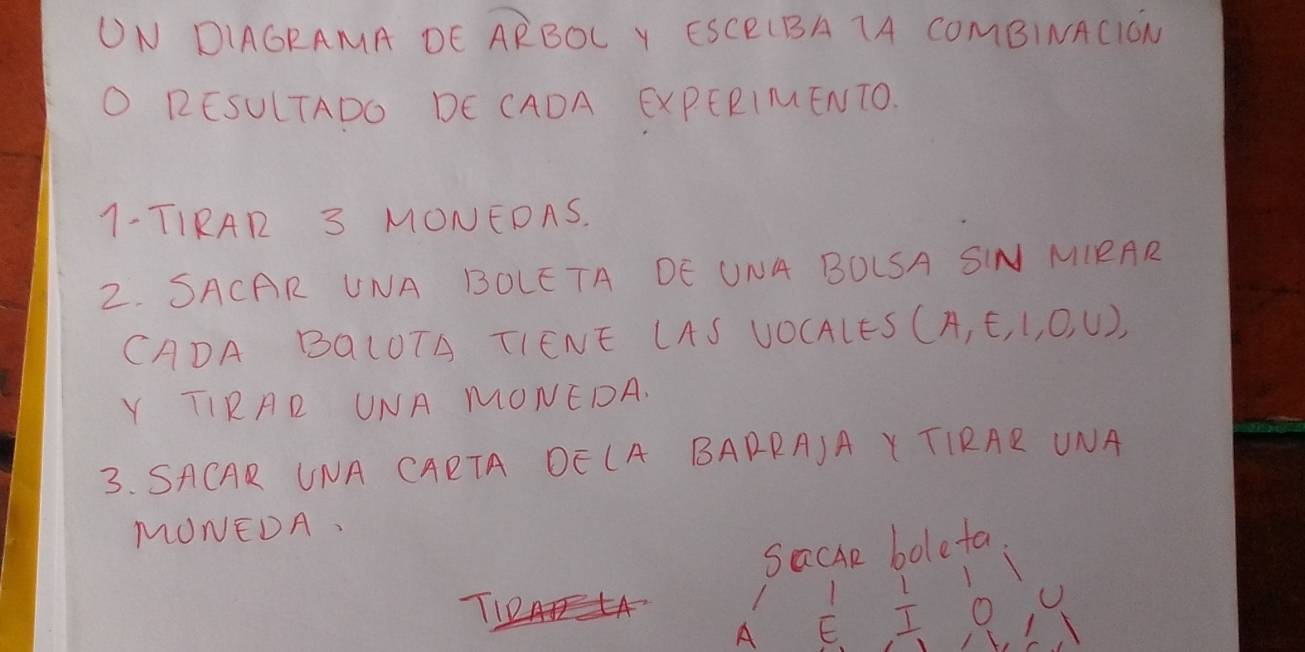 UN DIAGRAMA DE ARBOL Y ESCRIBA LA COMBINACIÓN
O RESULTADO DE CADA EXPERIMENTO.
1-TIRAR 3 MONEDAS.
2. SACAR UNA BOLETA DE UNA BOLSA SIN MIRAR
CADA BALOTA TIENE LAS VOCALES (A, E, I, O, U),
Y TIRAR UNA MONEDA.
3. SACAR UNA CARTA DE LA BARRAJA Y TIRAR UNA
MONEDA.
SACAR boleta.
A E I O U